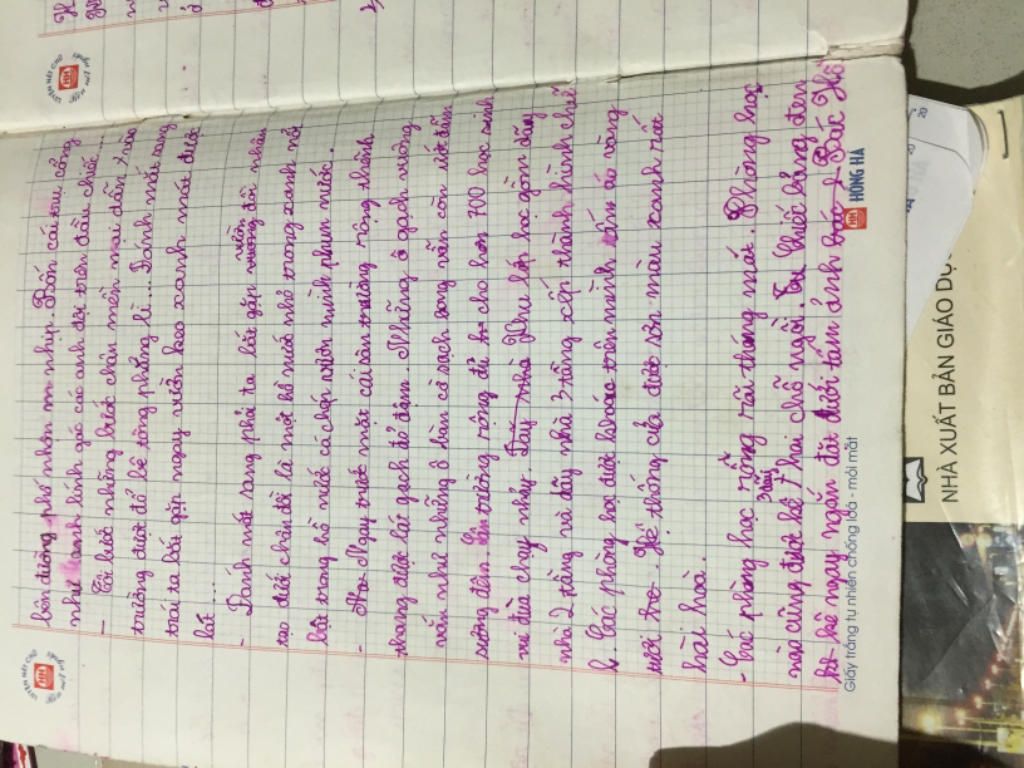 bên đường phố nhộn nhịp. Bốn cái trụ cổng
như anh lính gác các anh đội trên đầu chiếc ...
- Tôi bước những bước chân mềm mại dẫn vào
trường được đổ bê tông phẳng lì... Đánh mắt sang
trái ta bắt gặp ngay vườn keo xanh mát được
bắt...
- Đánh mắt sang phải ta bắt gặp vườn đồi nhân
tạo dưới chân đồi là một hồ nước nhỏ trong xanh nổi
bật trong hồ nước cá chép vươn mình phun nước.
- Ngay trước mặt cái sân trường rộng thênh
thang được lát gạch đỏ đậm. Những ô gạch vuông
vắn như những ô bàn cờ sạch song vẫn còn ướt đẫm
sương đêm. Sân trường rộng đủ cho hơn 700 học sinh
vui đùa chạy nhảy. Dãy nhà Khu lớp học gồm dãy
nhà 2 tầng và dãy nhà 3 tầng xếp thành hình chữ
L. Các phòng học được khoác trên mình tấm áo vàng
tươi trẻ. Hệ thống cửa được sơn màu xanh rất
hài hoà.
- Các phòng học rộng rãi thoáng mát. Phòng học
nào cũng được kê 3 dãy hai chỗ ngồi. Chiếc bảng đen
kê ngay ngắn đặt dưới tấm ảnh Bác Hồ
Giấy trắng tự nhiên chống loá - mỏi mắt
HH HỒNG HÀ
NHÀ XUẤT BẢN GIÁO DỤC
LUYỆN NÉT CHỮ
RÈN NẾT NGƯỜI
LUYỆN NÉT CHỮ
RÈN NẾT NGƯỜI